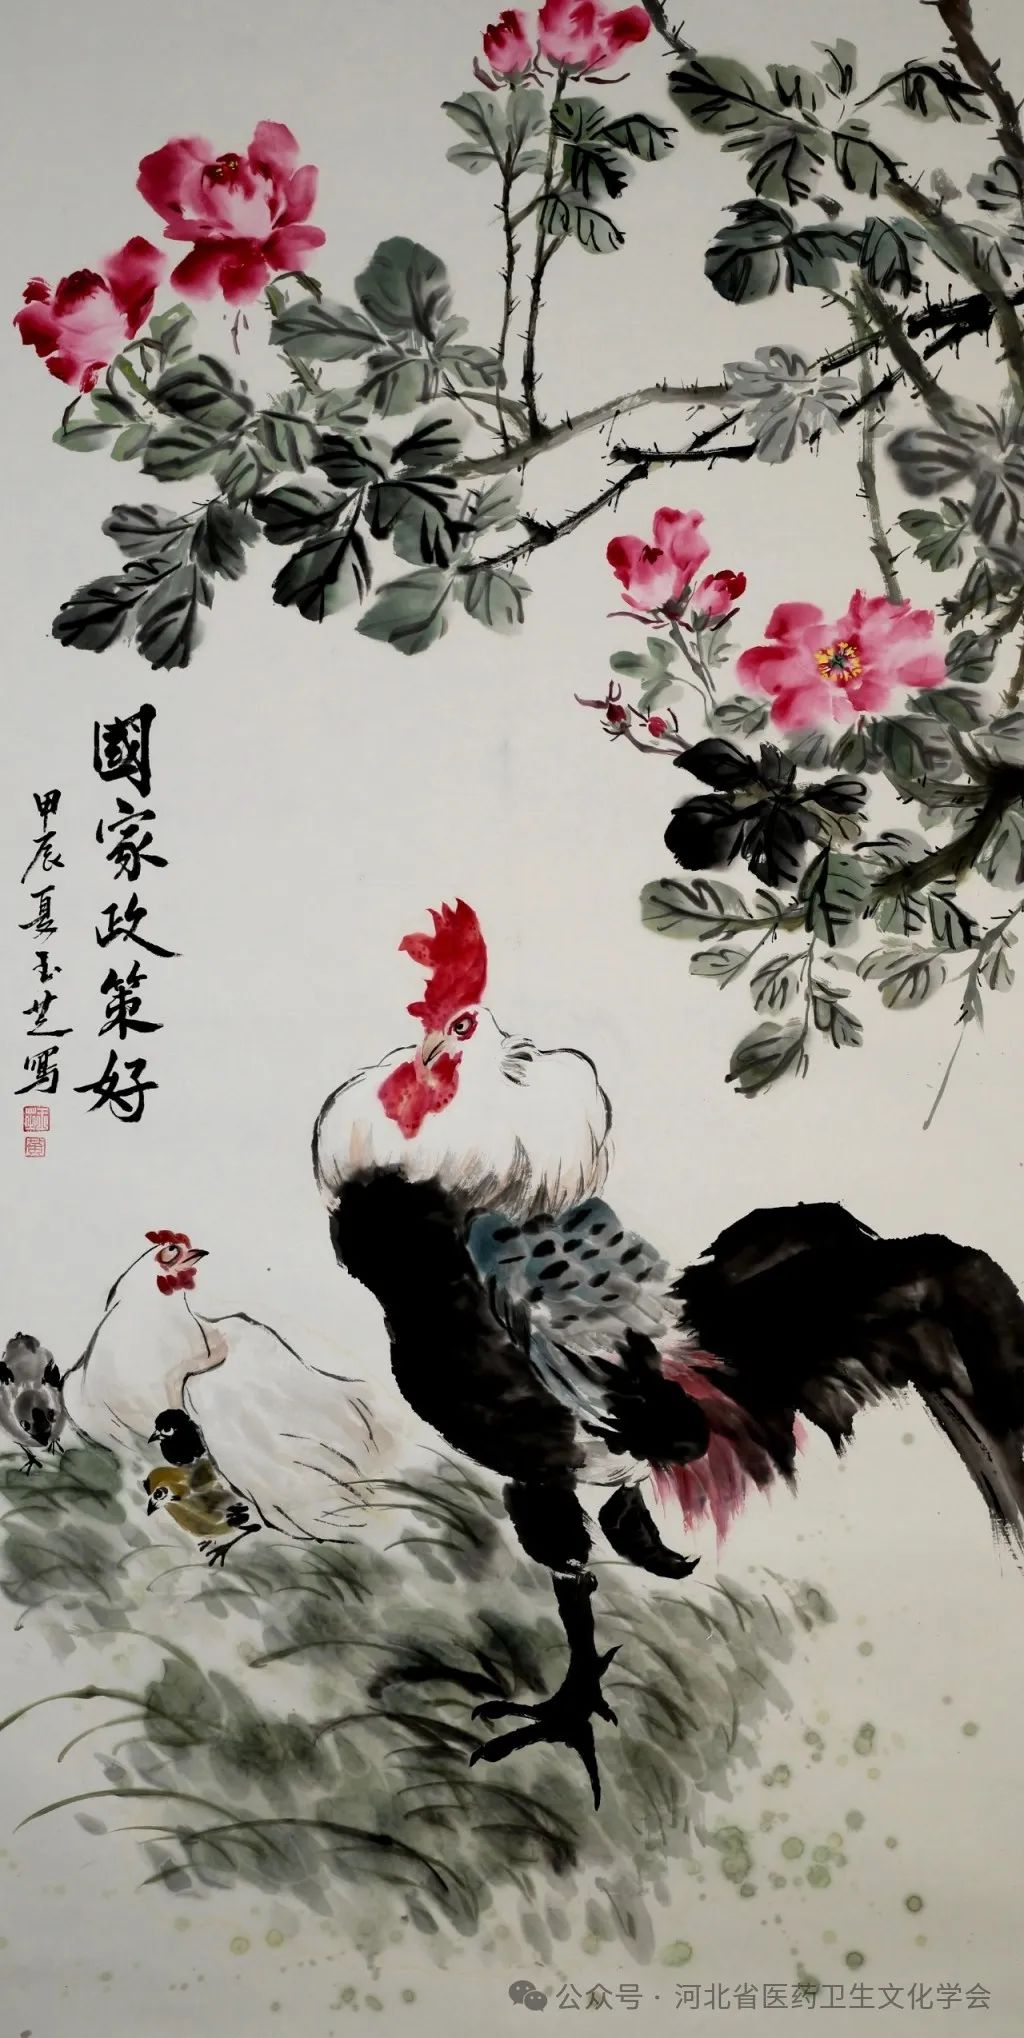 國家政策好
甲辰夏玉芝寫
公众号 · 河北省医药卫生文化学会